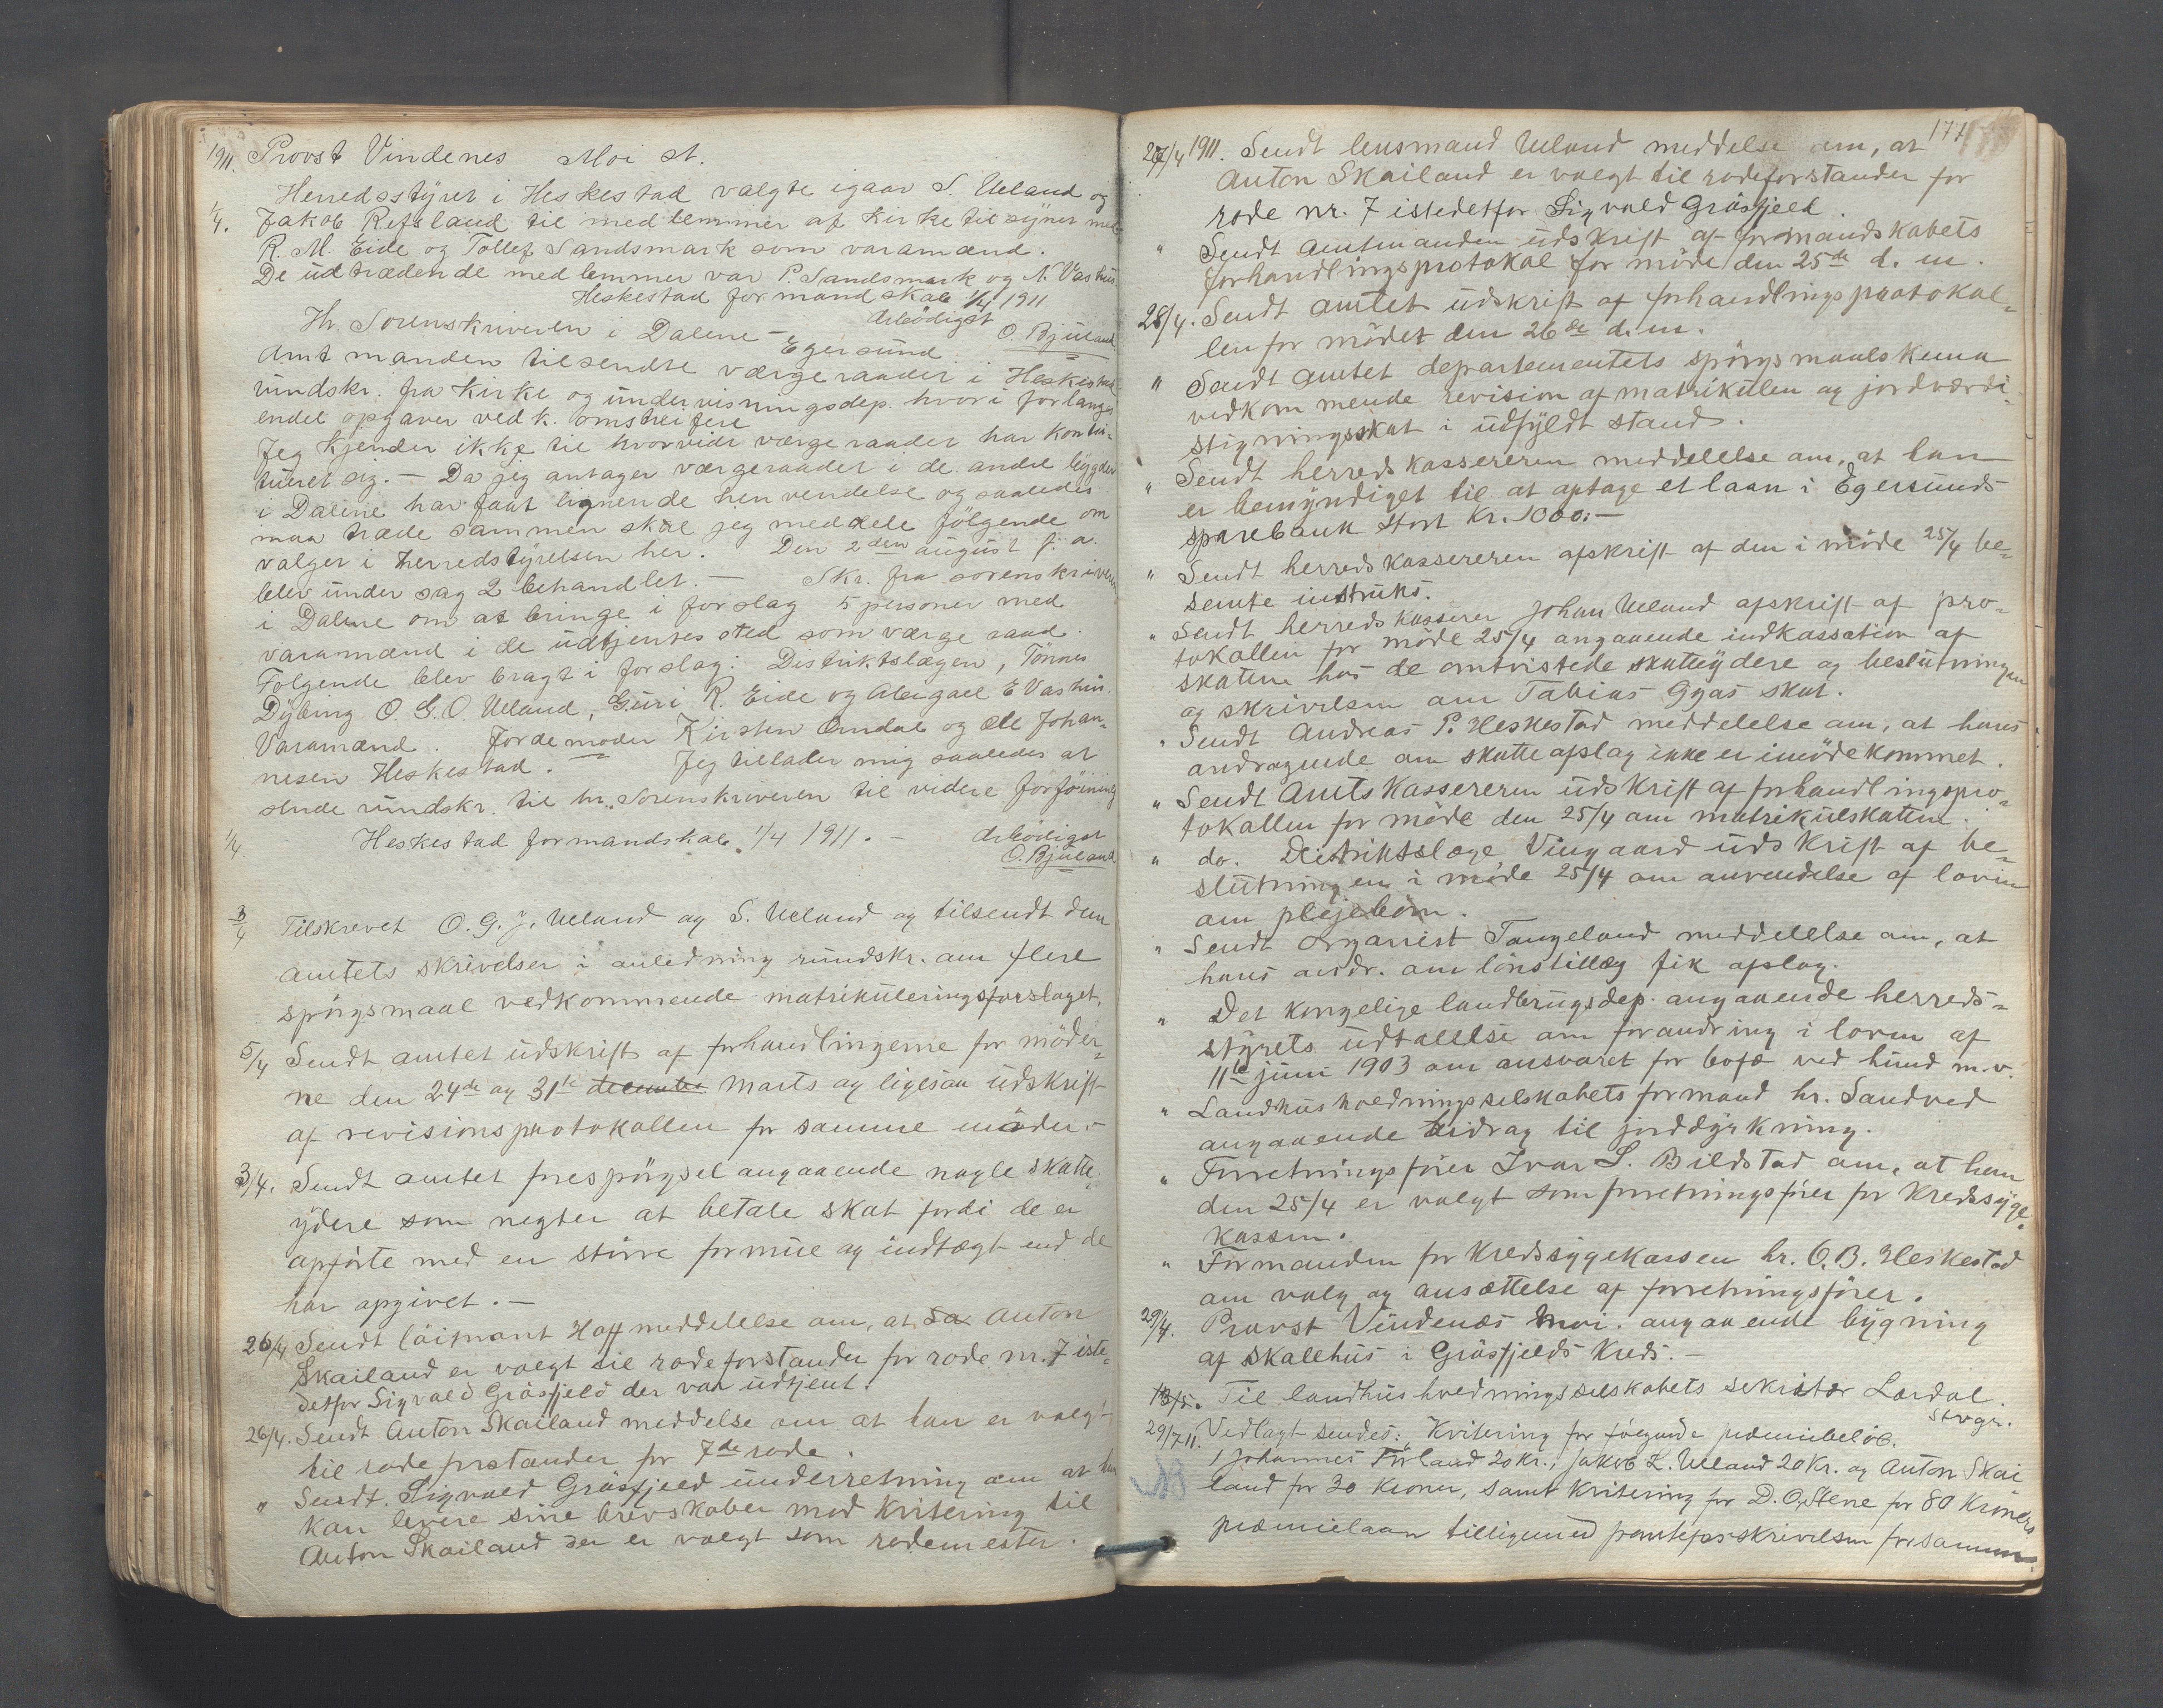 1911. Provst Vindenes Moi st.
Herredsstyret i Heskestad valgte igaar S. Ueland og
1/4. Jakob Refsland til medlemmer af kirketilsynet med
R. M. Eide og Tollef Sandsmark som varamænd.
De udtrædende medlemmer var P. Sandsmark og N. Vashus
Heskestad formandskab 1/4 1911
Ærbödigst
O. Bjuland
Hr. Sorenskriveren i Dalene – Egersund.
Amtmanden tilsendte værgeraadet i Heskestad
rundskr. fra kirke og undervisningsdep. hvori forlanges
endel opgaver vedk. omstreifere
Jeg kjender ikke til hvorvidt værgeraadet har konti-
tueret sig. – Da jeg antager værgeraadet i de andre bygder
i Dalene har faat lignende henvendelse og saaledes
maa træde sammen skal jeg meddele fölgende om
valget i herredstyrelsen her. Den 2den august f. a.
blev under sag 2 behandlet. – Skr. fra sorenskriveren
i Dalene om at bringe i forslag 5 personer med
varamænd i de udtjentes sted som værgeraad.
Fölgende blev bragt i forslag: Distriktslægen, Tönnes
Dybing O. G. O. Ueland, Guri R. Eide og Abigael E Vashus.
Varamænd. Jordemoder Kirsten Omdal og Ole Johan-
nesen Heskestad. – Jeg tillader mig saaledes at
sende rundskr. til hr. Sorenskriveren til videre forföining
1/4. Heskestad formandskab 1/4 1911. – Ærbödigst
O. Bjuland
3/4 Tilskrevet O. G. J. Ueland og S. Ueland og tilsendt dem
amtets skrivelser i anledning rundskr. om flere
spörgsmaal vedkommende matrikuleringsforslaget.
5/4 Sendt amtet udskrift af forhandlingerne for möder-
ne den 24de og 31te december marts og ligesaa udskrift
af revisionsprotokollen for samme möder. –
3/4. Sendt amtet forespörgsel angaaende nogle skatte-
ydere som negter at betale skat fordi de er
opförte med en större formue og indtægt end de
har opgivet. –
26/4 Sendt löitnant Hoff meddelelse om, at Anton
Skailand er valgt til rodeforstander for rode nr. 7 iste-
detfor Sigvald Gräsfjeld der var udtjent.
26/4. Sendt Anton Skailand meddelse om at han er valgt
til rodeforstander for 7de rode.
" Sendt Sigvald Gräsfjeld underretning om at han
kan levere sine brevskaber mod kvitering til
Anton Skailand der er valgt som rodemester.
177
27/4 1911. Sendt lensmand Ueland meddelse om, at
Anton Skailand er valgt til rodeforstander for
rode nr. 7 istedetfor Sigvald Gräsfjeld.
" Sendt amtmanden udskrift af formandskabets
forhandlingsprotokol for möde den 25de d. m.
28/4. Sendt amtet udskrift af forhandlingsprotokol-
len for mödet den 26de d. m.
" Sendt amtet departementets spörgsmaalskema
vedkommende revision af matrikulen og jordværdi-
stigningsskat i udfyldt stand.
" Sendt herredskassereren meddelelse om, at han
er bemyndiget til at optage et laan i Egersunds
sparebank stort Kr. 1000:–
" Sendt herredskassereren afskrift af den i möde 25/4 be-
stemte instruks.
" Sendt herredskasserer Johan Ueland afskrift af pro-
tokollen for möde 25/4 angaaende indkassation af
skatten hos de omtvistede skatteydere og beslutningen
og skrivelsen om Tabias Gyas skat.
" Sendt Andreas P. Heskestad meddelelse om, at hans
andragende om skatteafslag ikke er imödekommet.
" Sendt Amtskassereren udskrift af forhandlingspro-
tokollen for möde den 25/4 om matrikulskatten.
" do. Distriktslæge Vingaard udskrift af be-
slutningen i möde 25/4 om anvendelse af loven
om plejebörn.
" Sendt organist Tangeland meddelelse om, at
hans andr. om lönstillæg fik afslag.
" Det kongelige landbrugsdep. angaaende herreds-
styrets udtalelse om forandring i loven af
11te juni 1903 om ansvaret for bofæ ved hund m. v.
" Landhusholdningsselskabets formand hr. Sandved
angaaende bidrag til jorddyrkning.
" Forretningsförer Ivar S. Bilstad om, at han
den 25/4 er valgt som forretningsförer for Kredssyge-
kassen.
" Formanden for Kredssygekassen hr. O. B. Heskestad
om valg og ansættelse af forretningsförer.
29/4. Provst Vindenæs Moi. angaaende bygning
af skolehus i Gräsfjelds Kreds. –
13/5. Til landhusholdningsselskabets sekretær Lardal.
Stvgr.
29/7 11. Vedlagt sendes: Kvitering for fölgende præmiebelöb.
Johannes Förland 20 kr., Jakob L. Ueland 20 Kr. og Anton Skai
land for 30 Kroner, samt kvitering for D. O. Stene for 80 Kroners
præmielaan tilligemed panteforskrivelsen for samme.